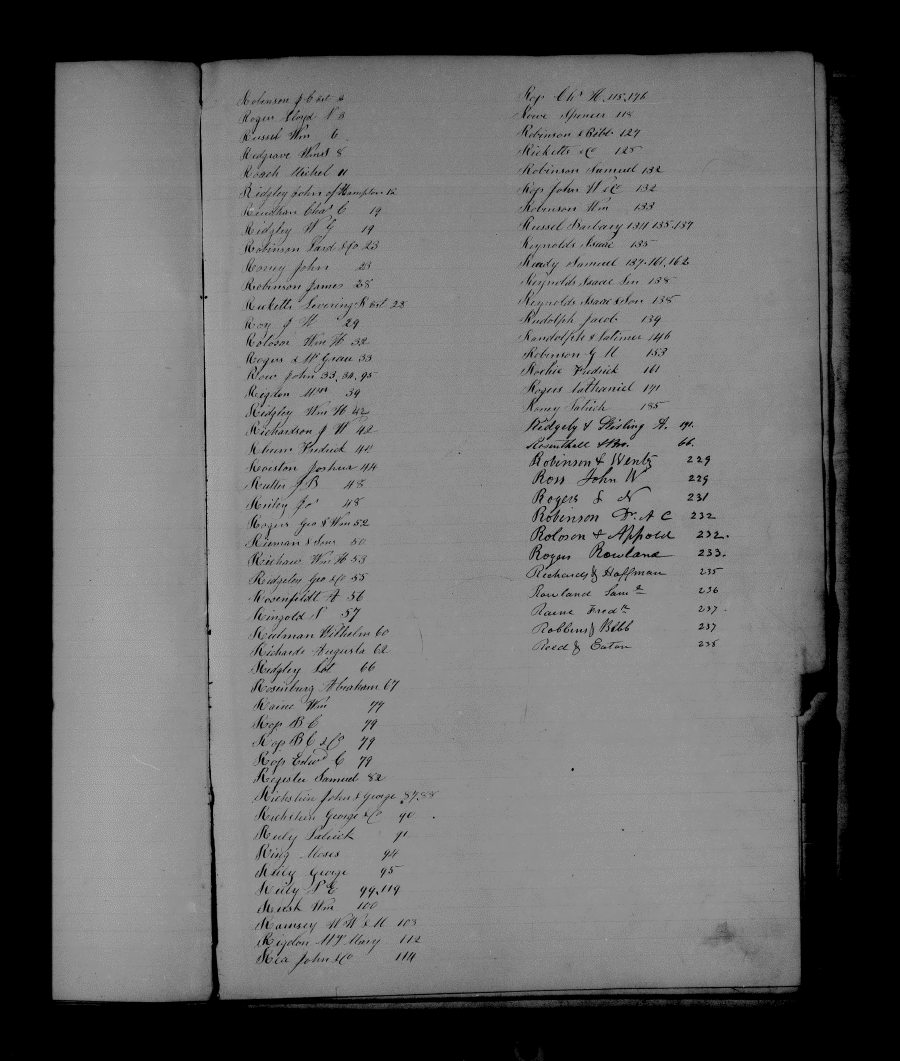 Robinson J C est 3
Rogers Lloyd N 3
Russel Wm 6
Redgrave 8
Roach Michel 11
Ridgley John of Hampton 12
Chas C 19
Ridgley W G 19
Robinson &Co 23
Roney John 23
Robinson James 28
Ricketts Levering & est 28
Roy J H 29
Roloson Wm H 32
Rogers & 33
Row John 33, 34, 95
Rigdon 39
Ridgley Wm H 42
Richardson J W 42
Fredrick 40
Royston Joshua 44
Rutter J B 48
Reiley Jos 48
Rogers Geo & Wm 52
Rieman & Sons 50
Wm H 53
Ridgeley Geo &Co 55
Rosenfeldt A 56
Ringold 57
Wilhelm 60
Richards Augusta 62
Ridgley Lot 66
Rosenburg Abraham 67
Raine Wm 77
Ross B C 79
Ross B C & Co 79
Ross Edwd C 79
Register Samuel 82
John & George 87, 88
George & Co 90
Patrick 91
Ring Moses 94
George 95
99, 119
Rush Wm 100
Ramsey W W & 103
Rigdon Mary 112
Rea John &Co 114
Ross Chs H, 115, 176
Rowe Spencer 118
Robinson & Bibb 127
Ricketts &Co 125
Robinson Samuel 132
Ross John W &Co 132
Robinson Wm 133
Russel Barbary 134 135, 137
Reynolds Isaac 135
Ready Samuel 137, 161, 162
Reynolds Isaac Sen 138
Reynolds Isaac & Son 138
Rudolph Jacob 139
Randolph & Latimer 146
Robinson G 153
Fredrick 161
Rogers Nathaniel 171
Roney Patrick 185
Ridgely & Stirling A. 191.
Rosenthall & Bro. 66.
Robinson & Wentz 229
Ross John W 229
Rogers S N 231
Robinson Dr. A C 232
Roloson & Appold 232.
Rogers Rowland 233.
Richards & Hoffman 235
Rowland Saml 236
Raine Fredk 237
Robbins & Bibb 237
Reed & Eaton 238